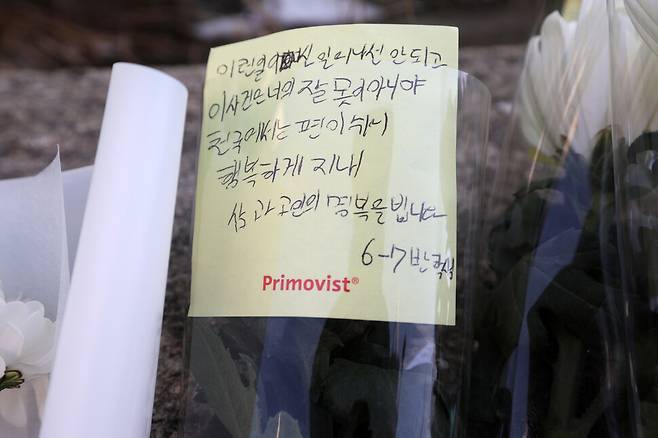 이런일이 다신 일어나선 안되고
이사건은 너의 잘못이아니야
천국에서는 편이쉬니
행복하게 지내
삼가 고인의 명복을 빕니다
6-17반
Primovist®